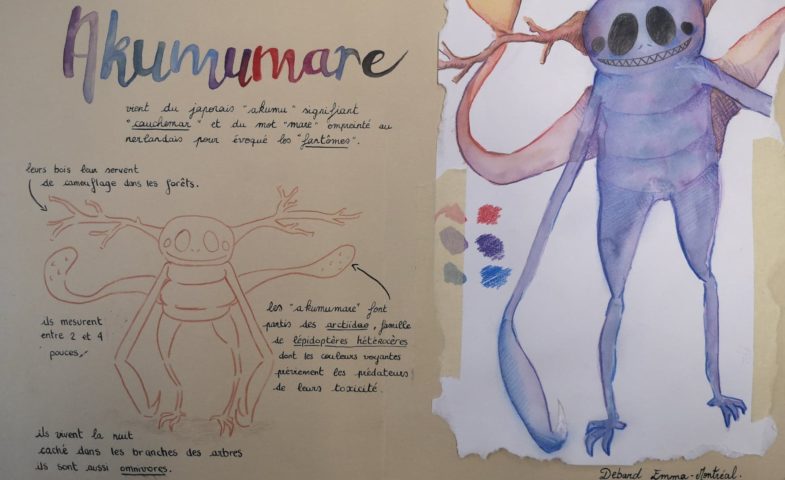 Akumumare
vient du japonais "akumu" signifiant
"cauchemar" et du mot "mare" empreinté au
nerlandais pour évoqué les "fantômes".
leurs bois leur servent
de camouflage dans les forêts.
ils mesurent
entre 2 et 4
pouces.
les "akumumare" font
partis des arctiidae, famille
de lépidoptères hétérocères
dont les couleurs voyantes
préviennent les prédateurs
de leurs toxicité.
ils vivent la nuit
caché dans les branches des arbres
ils sont aussi omnivores.
Debard Emma-Montréal.